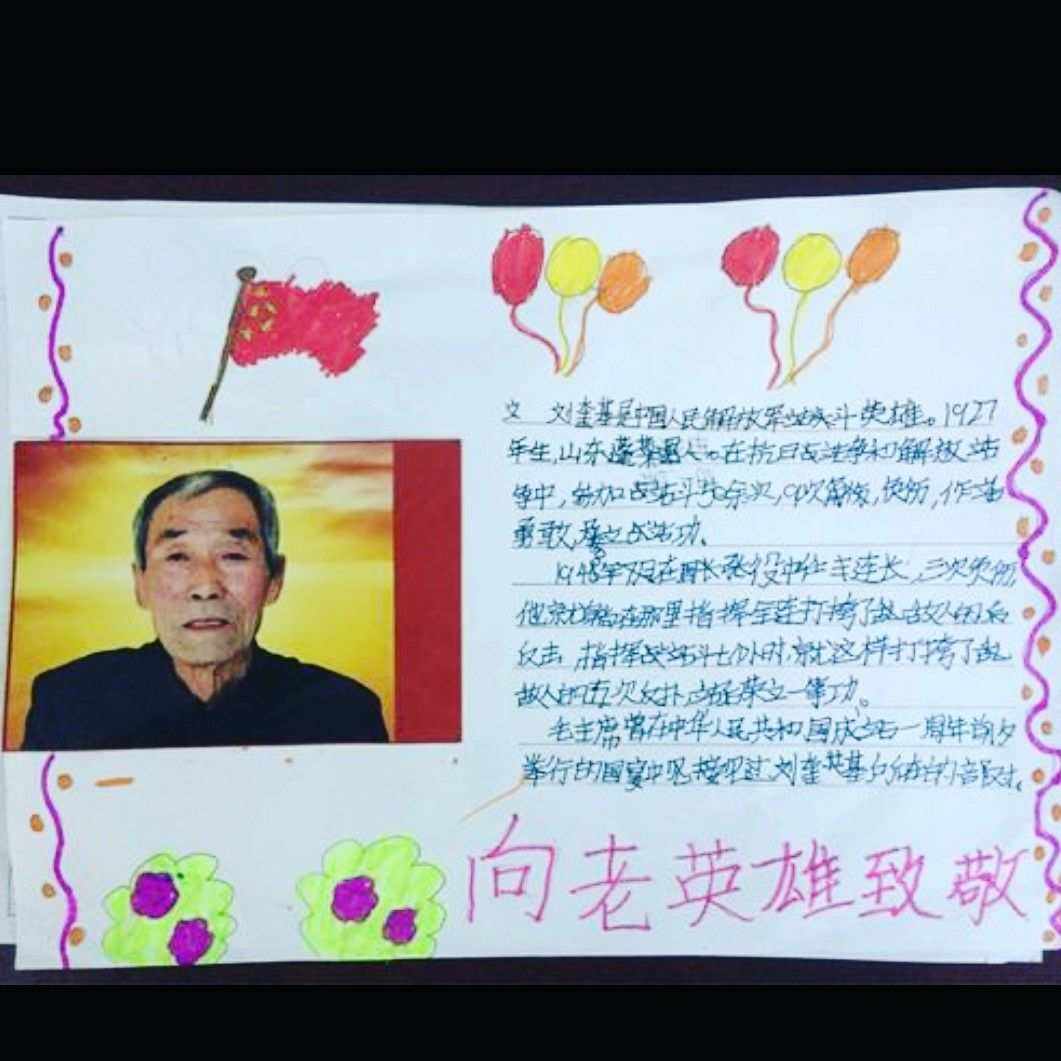 文 刘奎基是中国人民解放军战斗英雄。1927
年生,山东蓬莱县人。在抗日战争和解放战
争中,参加战斗 余次, 次负伤,作战
勇敢,屡立战功。
1948年 月在 役中任 连长,三次负伤,
他 在那里指挥全连打垮了 敌人的
反击,指挥战斗七个小时,就这样打垮了
敌人的五次反扑, 荣立一等功。
毛主席曾在中华人民共和国成立 一周年前夕
举行的国宴中 接见过刘奎基
向老英雄致敬